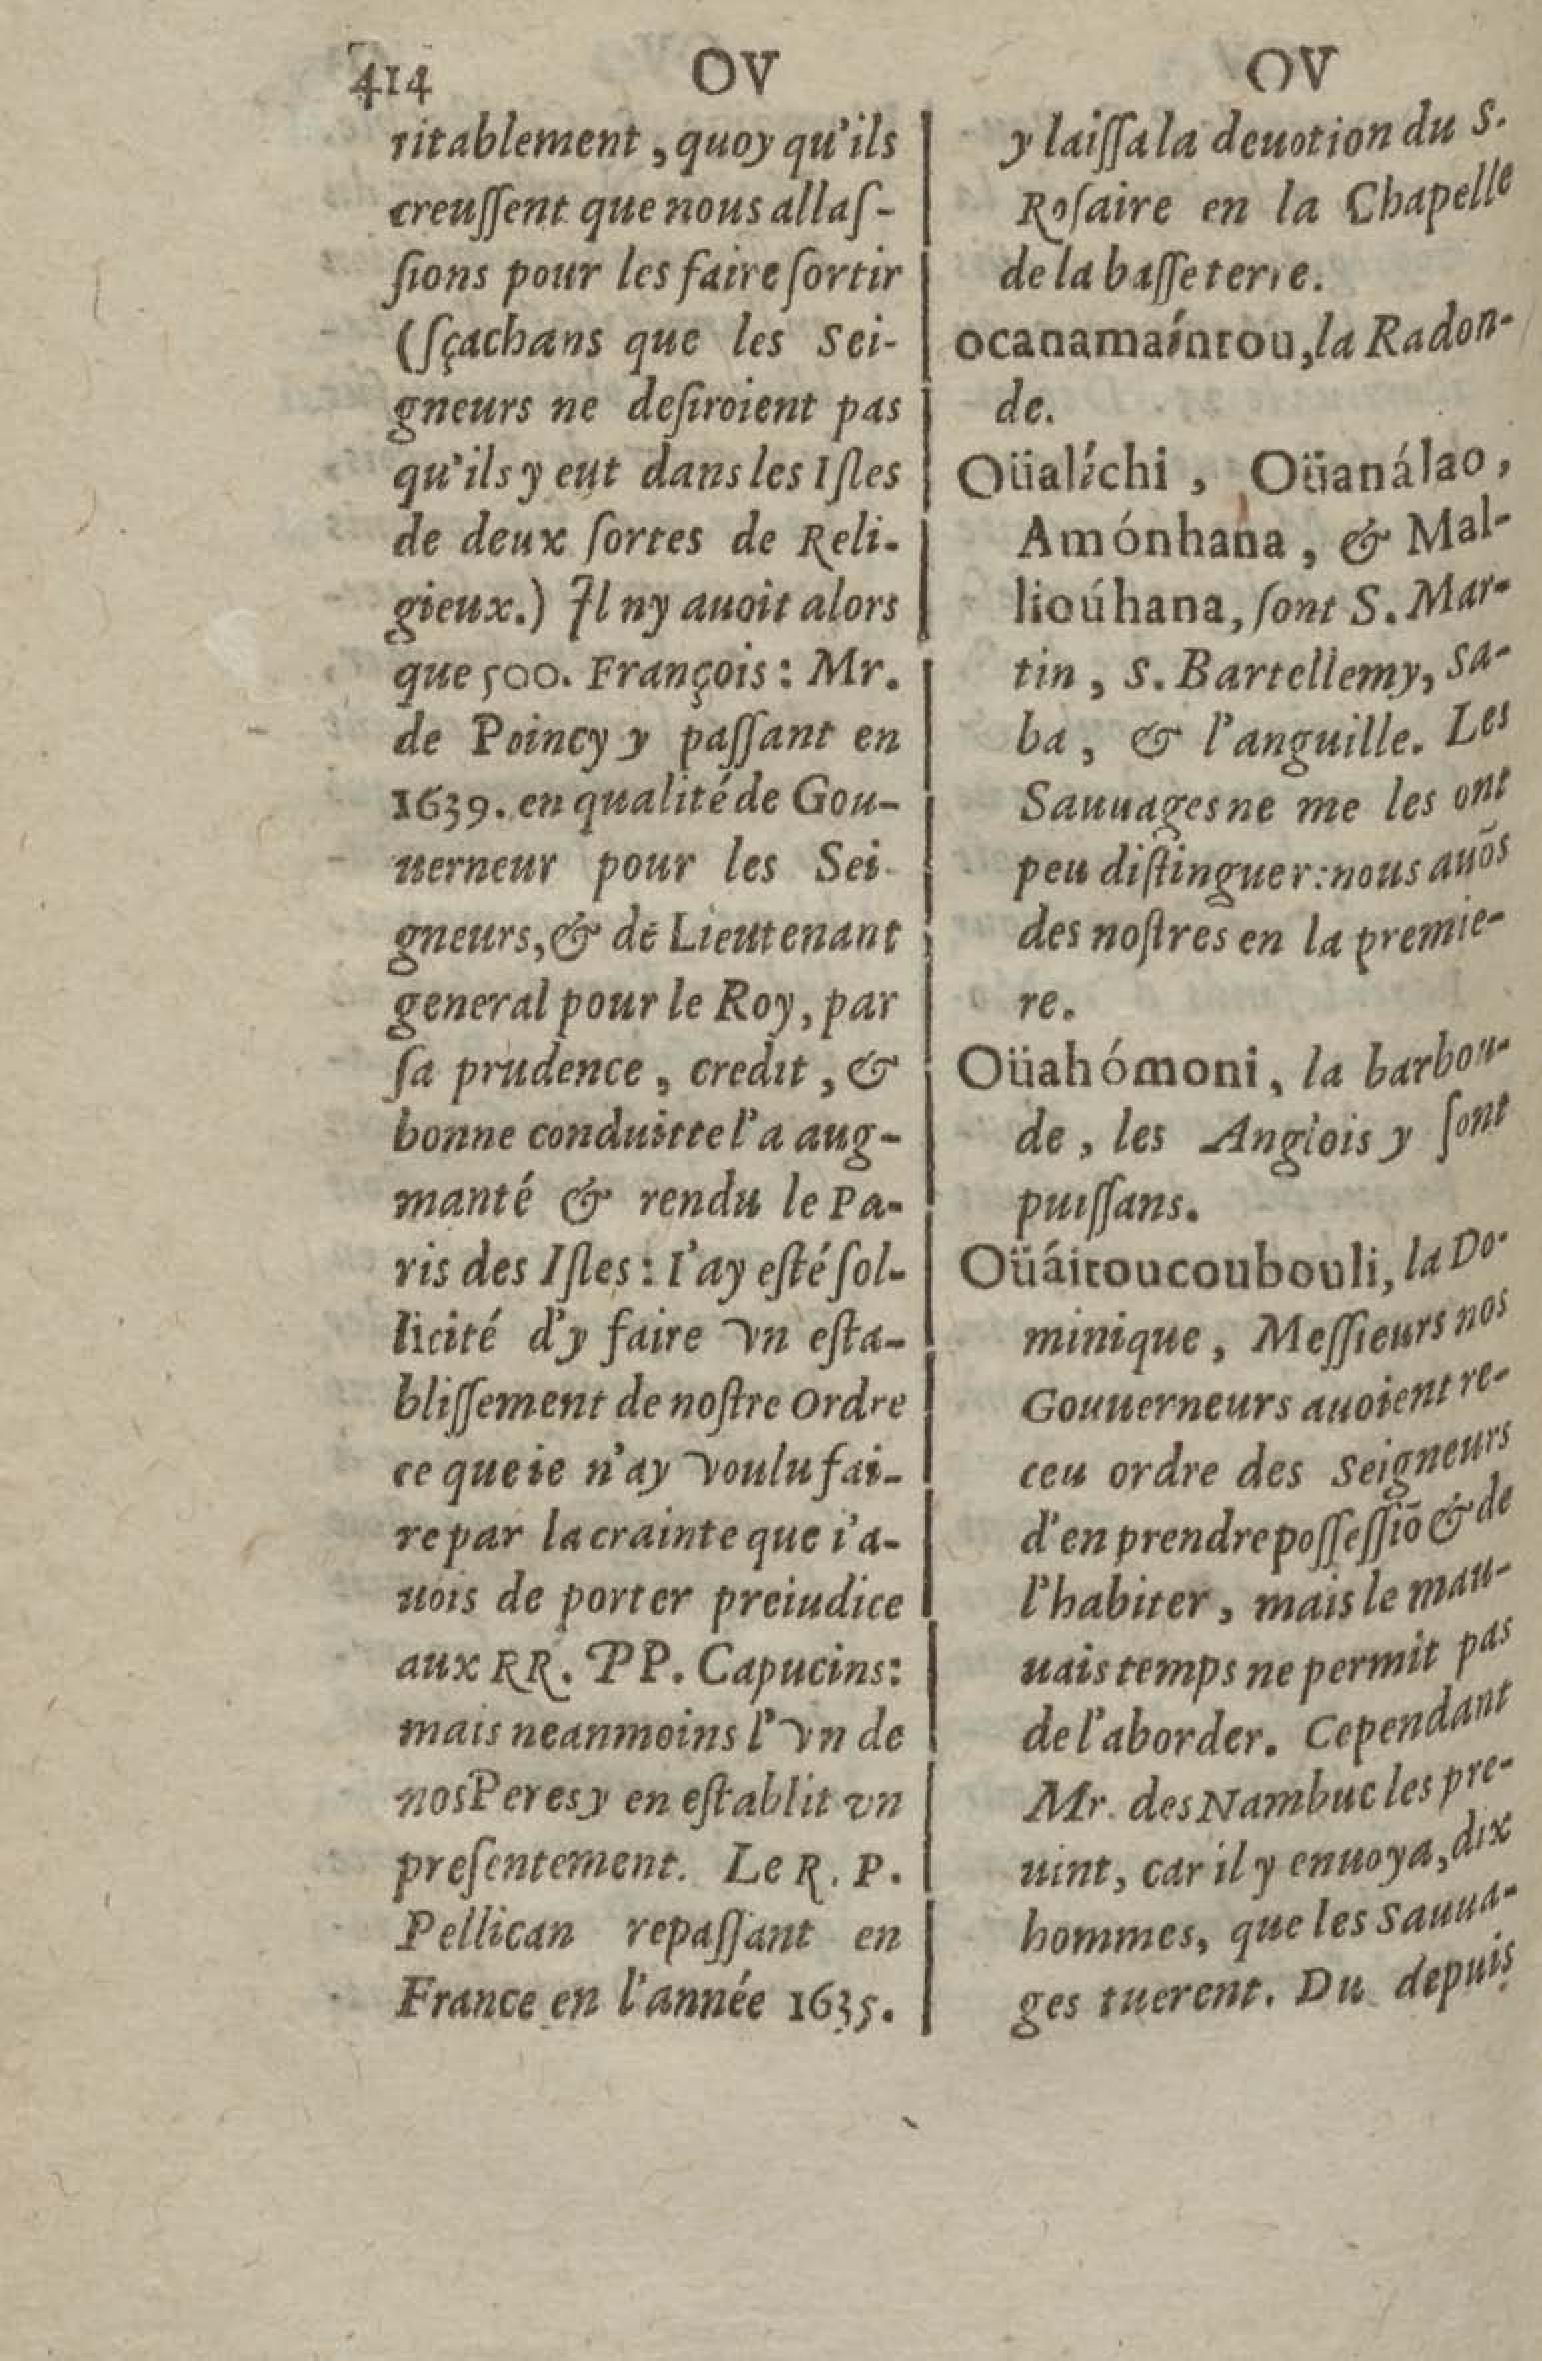 414 OV OV
ritablement, quoy qu'ils
creuſſent que nous allaſ-
ſions pour les faire ſortir
(ſçachans que les Sei-
gneurs ne deſiroient pas
qu'ils y eut dans les Iſles
de deux ſortes de Reli-
gieux.) Il ny auoit alors
que 500. François: Mr.
de Poincy y paſſant en
1639. en qualité de Gou-
uerneur pour les Sei-
gneurs, & de Lieutenant
general pour le Roy, par
ſa prudence, credit, &
bonne conduitte l'a aug-
manté & rendu le Pa-
ris des Iſles: I'ay eſté ſol-
licité d'y faire vn eſta-
bliſſement de noſtre Ordre
ce que ie n'ay voulu fai-
re par la crainte que i'a-
uois de porter preiudice
aux RR. PP. Capucins:
mais neanmoins l'vn de
nos Peres y en eſtablit vn
preſentement. Le R. P.
Pellican repaſſant en
France en l'année 1635.
y laiſſa la deuotion du S.
Roſaire en la Chapelle
de la baſſe terre.
ocanamaíntou, la Radon-
de.
Oüalíchi, Oüanálao,
Amónhana, & Mal-
lioúhana, ſont S. Mar-
tin, S. Bartellemy, Sa-
ba, & l'anguille. Les
Sauuages ne me les ont
peu diſtinguer: nous auõs
des noſtres en la premie-
re.
Oüahómoni, la barbou-
de, les Anglois y ſont
puiſſans.
Oüáitoucoubouli, la Do-
minique, Meſſieurs nos
Gouuerneurs auoient re-
ceu ordre des Seigneurs
d'en prendre poſſeſſiõ & de
l'habiter, mais le mau-
uais temps ne permit pas
de l'aborder. Cependant
Mr. des Nambuc les pre-
uint, car il y enuoya, dix
hommes, que les Sauua-
ges tuerent. Du depuis